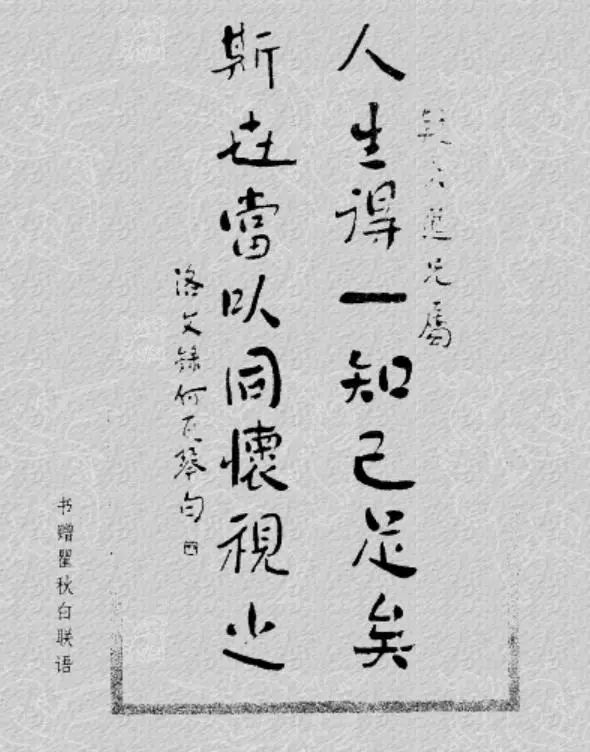 疑久道兄屬
人生得一知己足矣
斯世當以同懷視之
洛文錄何瓦琴句
书赠瞿秋白联语